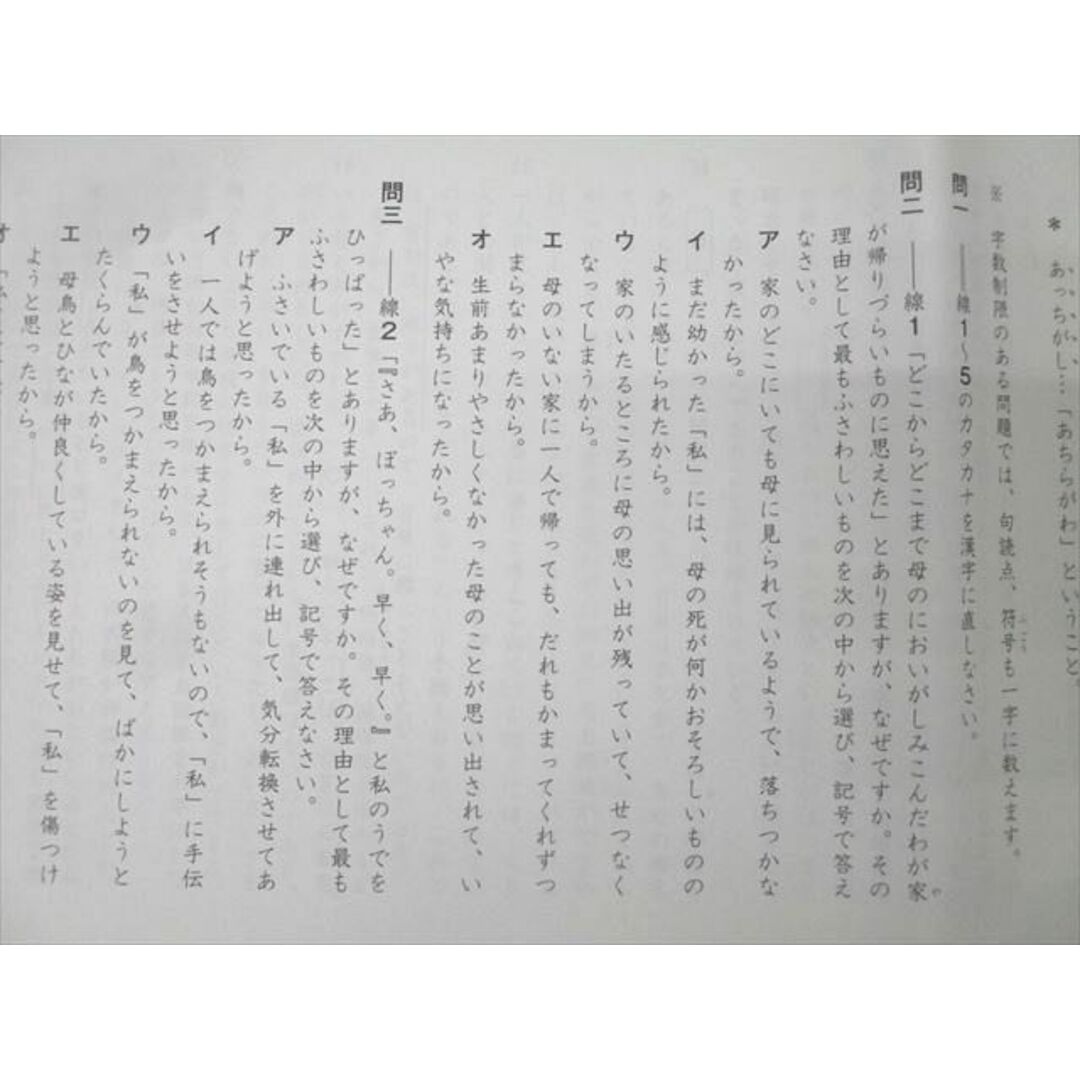 * あっちがし…「あちらがわ」ということ。
※ 字数制限のある問題では、句読点、符号も一字に数えます。
ふごう
問一 ――線1～5のカタカナを漢字に直しなさい。
問二 ――線1「どこからどこまで母のにおいがしみこんだわが家
や
が帰りづらいものに思えた」とありますが、なぜですか。その
理由として最もふさわしいものを次の中から選び、記号で答え
なさい。
ア 家のどこにいても母に見られているようで、落ちつかな
かったから。
イ まだ幼かった「私」には、母の死が何かおそろしいものの
ように感じられたから。
ウ 家のいたるところに母の思い出が残っていて、せつなく
なってしまうから。
エ 母のいない家に一人で帰っても、だれもかまってくれずつ
まらなかったから。
オ 生前あまりやさしくなかった母のことが思い出されて、い
やな気持ちになったから。
問三 ――線2「『さあ、ぼっちゃん。早く、早く。』と私のうでを
ひっぱった」とありますが、なぜですか。その理由として最も
ふさわしいものを次の中から選び、記号で答えなさい。
ア ふさいでいる「私」を外に連れ出して、気分転換させてあ
げようと思ったから。
イ 一人では鳥をつかまえられそうもないので、「私」に手伝
いをさせようと思ったから。
ウ 「私」が鳥をつかまえられないのを見て、ばかにしようと
たくらんでいたから。
エ 母鳥とひなが仲良くしている姿を見せて、「私」を傷つけ
ようと思ったから。
オ